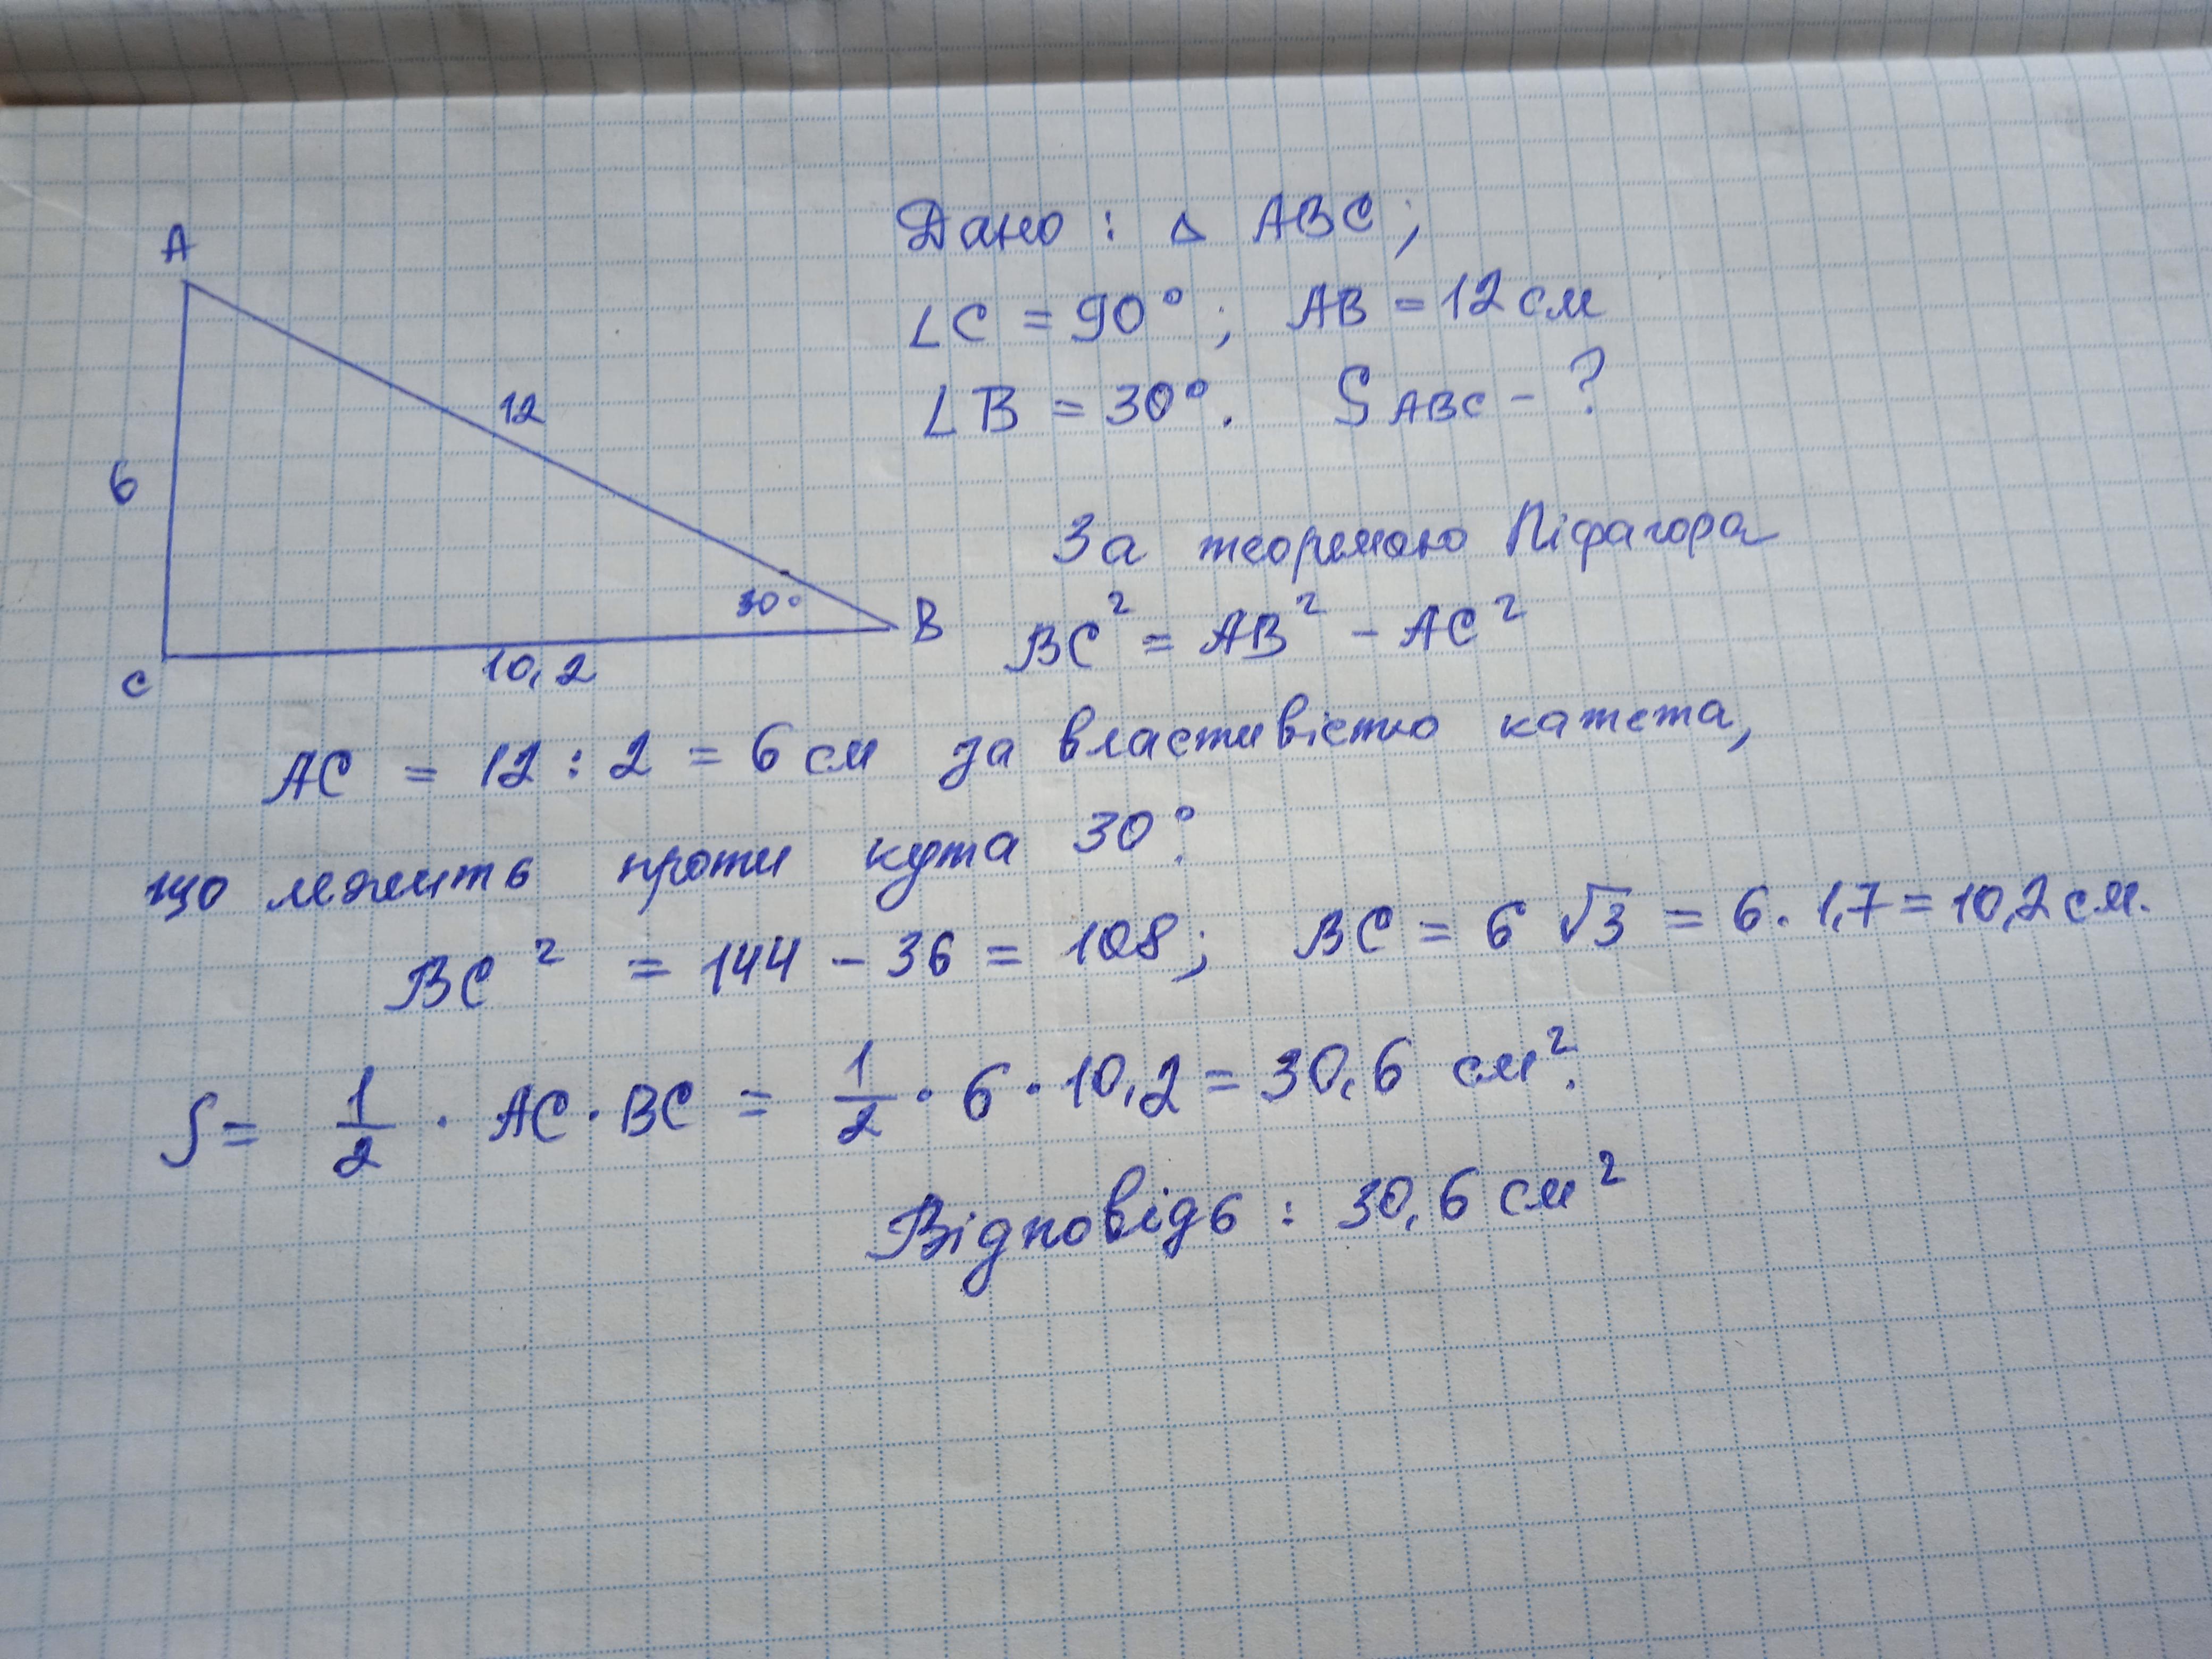 A
12
6
30°
B
C
10,2
Дано : △ ABC;
∠C = 90°; AB = 12 см
∠B = 30°. S ABC - ?
За теоремою Піфагора
BC² = AB² - AC²
AC = 12 : 2 = 6 см за властивістю катета,
що лежить проти кута 30°.
BC² = 144 - 36 = 108; BC = 6 √3 = 6 · 1,7 = 10,2 см.
S = 1/2 · AC · BC = 1/2 · 6 · 10,2 = 30,6 см².
Відповідь : 30,6 см²